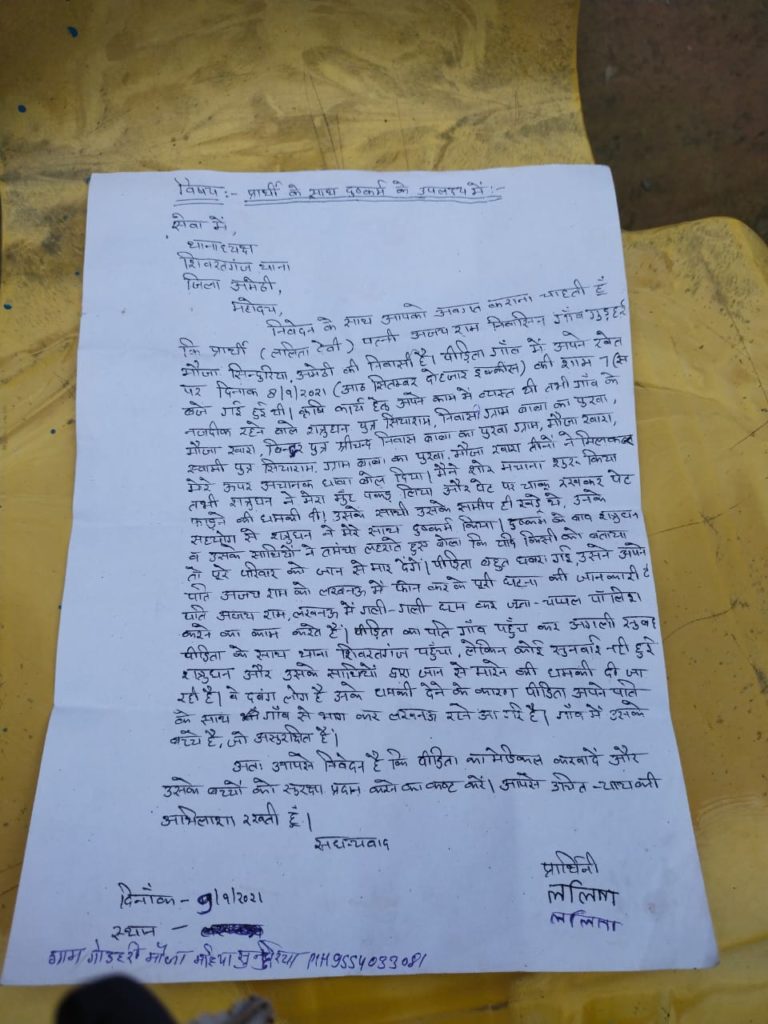 विषय :- प्रार्थी के साथ दुष्कर्म के उपलक्ष्य में :-
सेवा में,
थानाध्यक्ष
शिवरतगंज थाना
जिला अमेठी,
महोदय,
निवेदन के साथ आपको अवगत कराना चाहती हूँ
कि प्रार्थी (ललिता देवी) पत्नी अजय राम निवासिन गाँव गुड़हर
मौजा सिन्दुरिया, अमेठी की निवासी है। पीड़िता गाँव में अपने खेत
पर दिनांक 8/9/2021 (आठ सितम्बर दो हजार इक्कीस) की शाम 7 (
बजे गई हुई थी। कृषि कार्य हेतु अपने काम में व्यस्त थी तभी गाँव के
नजदीक रहने वाले शत्रुघन पुत्र सियाराम, निवासी ग्राम बाबा का पुरवा,
मौजा खारा, पुत्र श्रीचन्द निवास बाबा का पुरवा ग्राम, मौजा खारा,
स्वामी पुत्र सियाराम, ग्राम बाबा का पुरवा, मौजा खारा तीनों ने मिलकर
मेरे ऊपर अचानक धावा बोल दिया। मैंने शोर मचाना शुरू किया
तभी शत्रुघन ने मेरा मुँह पकड़ लिया और पेट पर चाकू रखकर पेट
फाड़ने की धमकी दी। उसके साथी उसके समीप ही खड़े थे, उनके
सहयोग से शत्रुघन ने मेरे साथ दुष्कर्म किया। दुष्कर्म के बाद शत्रुघन
व उसके साथियों ने तमंचा लहराते हुए बोला कि यदि किसी को बताया
तो पूरे परिवार को जान से मार देंगे। पीड़िता बहुत घबरा गई, उसने अपने
पति अजय राम को लखनऊ में फोन करके पूरी घटना की जानकारी दी
पति अजय राम, लखनऊ में गली-गली घूम कर जूता-चप्पल पॉलिश
करने का काम करते हैं। पीड़िता का पति गाँव पहुँच कर अगली सुबह
पीड़िता के साथ थाना शिवरतगंज पहुँचा, लेकिन कोई सुनवाई नहीं हुई
शत्रुघन और उसके साथियों द्वारा जान से मारने की धमकी दी जा
रही है। वे दबंग लोग है उनके धमकी देने के कारण पीड़िता अपने पति
के साथ गाँव से भाग कर लखनऊ रहने आ गई है। गाँव में उसके
बच्चे है, जो असुरक्षित हैं।
अतः आपसे निवेदन है कि पीड़िता का मेडिकल करवादें और
उसके बच्चों को सुरक्षा प्रदान करने का कष्ट करें। आपसे उचित न्याय की
अभिलाषा रखती हूँ।
सधन्यवाद
प्रार्थिनी
ललिता
ललिता
दिनाँक - 9/9/2021
स्थान -
ग्राम गोडहरी मौजा 9554033081